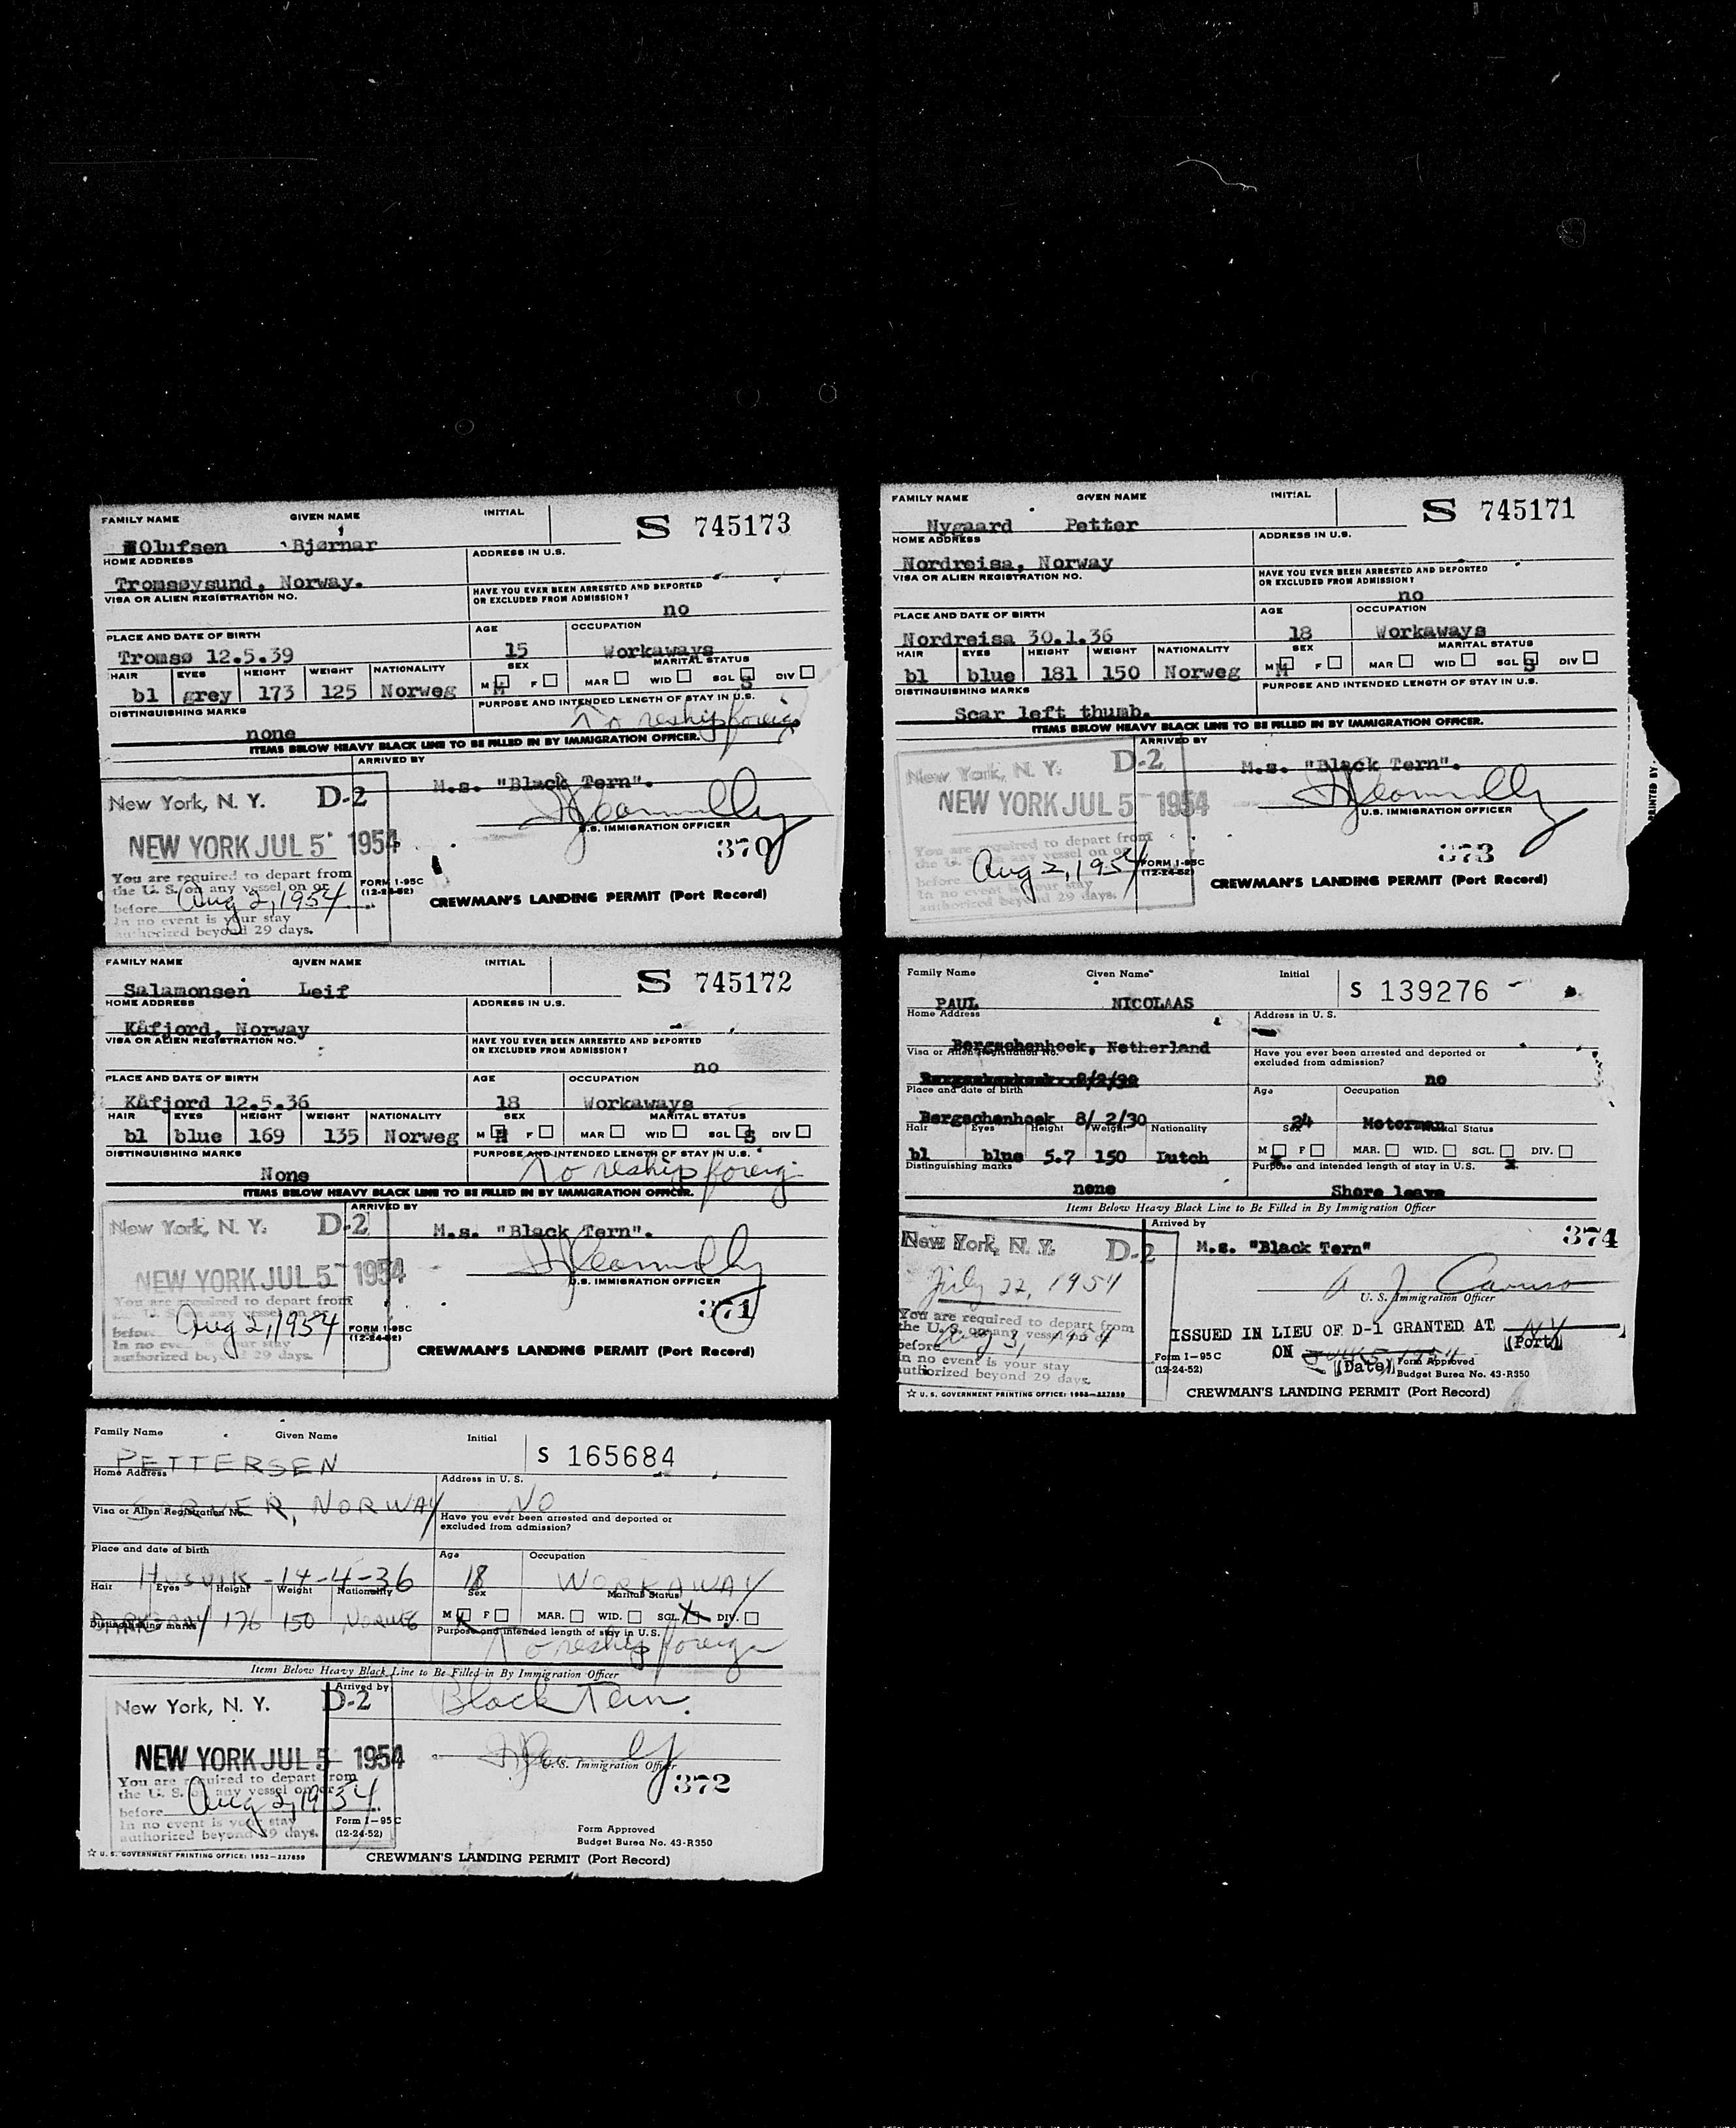 FAMILY NAME GIVEN NAME INITIAL
S 745173
Olufsen Bjørnar
HOME ADDRESS ADDRESS IN U.S.
Tromsøysund, Norway.
VISA OR ALIEN REGISTRATION NO. HAVE YOU EVER BEEN ARRESTED AND DEPORTED
OR EXCLUDED FROM ADMISSION?
no
PLACE AND DATE OF BIRTH AGE OCCUPATION
Tromsø 12.5.39 15 Workaways
HAIR EYES HEIGHT WEIGHT NATIONALITY SEX MARITAL STATUS
bl grey 173 125 Norweg M M F MAR WID SGL S DIV
DISTINGUISHING MARKS PURPOSE AND INTENDED LENGTH OF STAY IN U.S.
none To reship foreign
ITEMS BELOW HEAVY BLACK LINE TO BE FILLED IN BY IMMIGRATION OFFICER.
ARRIVED BY
M.s. "Black Tern".
New York, N. Y. D-2
U.S. IMMIGRATION OFFICER
NEW YORK JUL 5 1954
370
You are required to depart from
the U. S. on any vessel on or
before Aug 2, 1954
In no event is your stay
authorized beyond 29 days.
FORM I-95C
(12-24-52)
CREWMAN'S LANDING PERMIT (Port Record)
FAMILY NAME GIVEN NAME INITIAL
S 745171
Nygaard Petter
HOME ADDRESS ADDRESS IN U.S.
Nordreisa, Norway
VISA OR ALIEN REGISTRATION NO. HAVE YOU EVER BEEN ARRESTED AND DEPORTED
OR EXCLUDED FROM ADMISSION?
no
PLACE AND DATE OF BIRTH AGE OCCUPATION
Nordreisa 30.1.36 18 Workaways
HAIR EYES HEIGHT WEIGHT NATIONALITY SEX MARITAL STATUS
bl blue 181 150 Norweg M M F MAR WID SGL S DIV
DISTINGUISHING MARKS PURPOSE AND INTENDED LENGTH OF STAY IN U.S.
Scar left thumb.
ITEMS BELOW HEAVY BLACK LINE TO BE FILLED IN BY IMMIGRATION OFFICER.
ARRIVED BY
M.s. "Black Tern".
New York, N. Y. D-2
NEW YORK JUL 5 1954
U.S. IMMIGRATION OFFICER
PRINTED BY
373
You are required to depart from
the U. S. on any vessel on or
before Aug 2, 1954
In no event is your stay
authorized beyond 29 days.
FORM I-95C
(12-24-52)
CREWMAN'S LANDING PERMIT (Port Record)
FAMILY NAME GIVEN NAME INITIAL
S 745172
Salamonsen Leif
HOME ADDRESS ADDRESS IN U.S.
Kåfjord, Norway
VISA OR ALIEN REGISTRATION NO. HAVE YOU EVER BEEN ARRESTED AND DEPORTED
OR EXCLUDED FROM ADMISSION?
no
PLACE AND DATE OF BIRTH AGE OCCUPATION
Kåfjord 12.5.36 18 Workaways
HAIR EYES HEIGHT WEIGHT NATIONALITY SEX MARITAL STATUS
bl blue 169 135 Norweg M M F MAR WID SGL S DIV
DISTINGUISHING MARKS PURPOSE AND INTENDED LENGTH OF STAY IN U.S.
None To reship foreign
ITEMS BELOW HEAVY BLACK LINE TO BE FILLED IN BY IMMIGRATION OFFICER.
ARRIVED BY
M.s. "Black Tern".
New York, N. Y. D-2
NEW YORK JUL 5 1954
U.S. IMMIGRATION OFFICER
371
You are required to depart from
before Aug 2, 1954
In no event is your stay
authorized beyond 29 days.
FORM I-95C
(12-24-52)
CREWMAN'S LANDING PERMIT (Port Record)
Family Name Given Name Initial
S 139276
PAUL NICOLAAS
Home Address Address in U. S.
Bergschenhoek, Netherland
Visa or Alien Registration No. Have you ever been arrested and deported or
excluded from admission?
no
Place and date of birth Age Occupation
Bergschenhoek 8/ 2/30 24 Motorman
Hair Eyes Height Weight Nationality Sex Marital Status
bl blue 5.7 150 Dutch M F MAR. WID. SGL. DIV.
Distinguishing marks Purpose and intended length of stay in U.S.
none Shore leave
Items Below Heavy Black Line to Be Filled in By Immigration Officer
Arrived by
374
M.s. "Black Tern"
New York, N. Y. D-2
July 22, 1954
A J. Caruso
U. S. Immigration Officer
You are required to depart from
the U. S. on any vessel on or
before Aug 3, 1954
In no event is your stay
authorized beyond 29 days.
ISSUED IN LIEU OF D-1 GRANTED AT NY (Port)
ON July 5, 1954 (Date)
Form I-95C
(12-24-52)
Form Approved
Budget Bureau No. 43-R350
☆ U. S. GOVERNMENT PRINTING OFFICE: 1952-227859
CREWMAN'S LANDING PERMIT (Port Record)
Family Name Given Name Initial
S 165684
PETTERSEN
Home Address Address in U. S.
NORWAY NO
Visa or Alien Registration No. Have you ever been arrested and deported or
excluded from admission?
Place and date of birth Age Occupation
HUSVIK -14-4-36 18 WORKAWAY
Hair Eyes Height Weight Nationality Sex Marital Status
DARK GRAY 176 150 NORWEG M F MAR. WID. SGL. X DIV.
Distinguishing marks Purpose and intended length of stay in U.S.
To reship foreign
Items Below Heavy Black Line to Be Filled in By Immigration Officer
Arrived by
Black Tern.
New York, N. Y. D-2
NEW YORK JUL 5 1954
U. S. Immigration Officer
372
You are required to depart from
the U. S. on any vessel on or
before Aug 2, 1954
In no event is your stay
authorized beyond 29 days.
Form I-95C
(12-24-52)
Form Approved
Budget Bureau No. 43-R350
☆ U. S. GOVERNMENT PRINTING OFFICE: 1952-227859
CREWMAN'S LANDING PERMIT (Port Record)